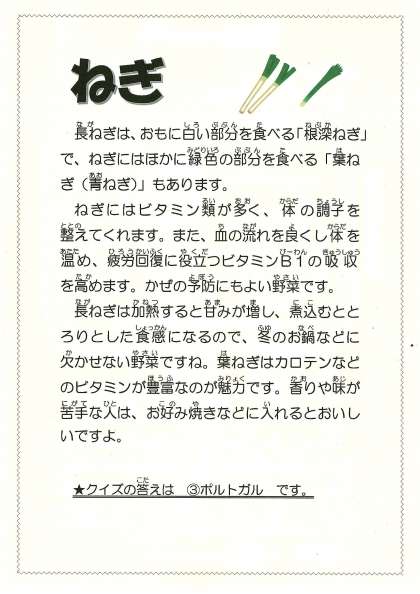 ねぎ
長ねぎは、おもに白い部分を食べる「根深ねぎ」
で、ねぎにはほかに緑色の部分を食べる「葉ね
ぎ（青ねぎ）」もあります。
ねぎにはビタミン類が多く、体の調子を
整えてくれます。また、血の流れを良くし体を
温め、疲労回復に役立つビタミンB1の吸収
を高めます。かぜの予防にもよい野菜です。
長ねぎは加熱すると甘みが増し、煮込むとと
ろりとした食感になるので、冬のお鍋などに
欠かせない野菜ですね。葉ねぎはカロテンなど
のビタミンが豊富なのが魅力です。香りや味が
苦手な人は、お好み焼きなどに入れるとおいし
いですよ。
★クイズの答えは　③ポルトガル　です。